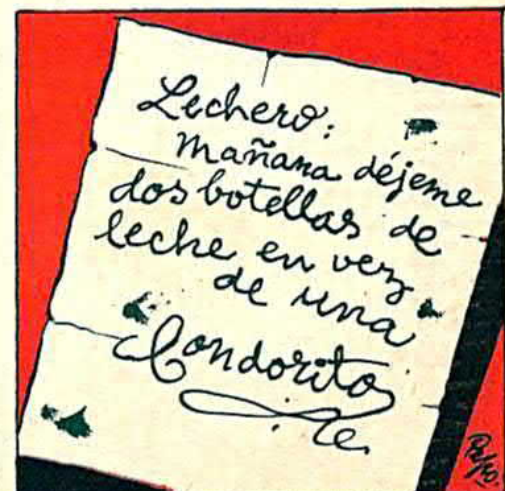 Lechero:
Mañana déjeme
dos botellas de
leche en vez
de una
Condorito
Pepo.